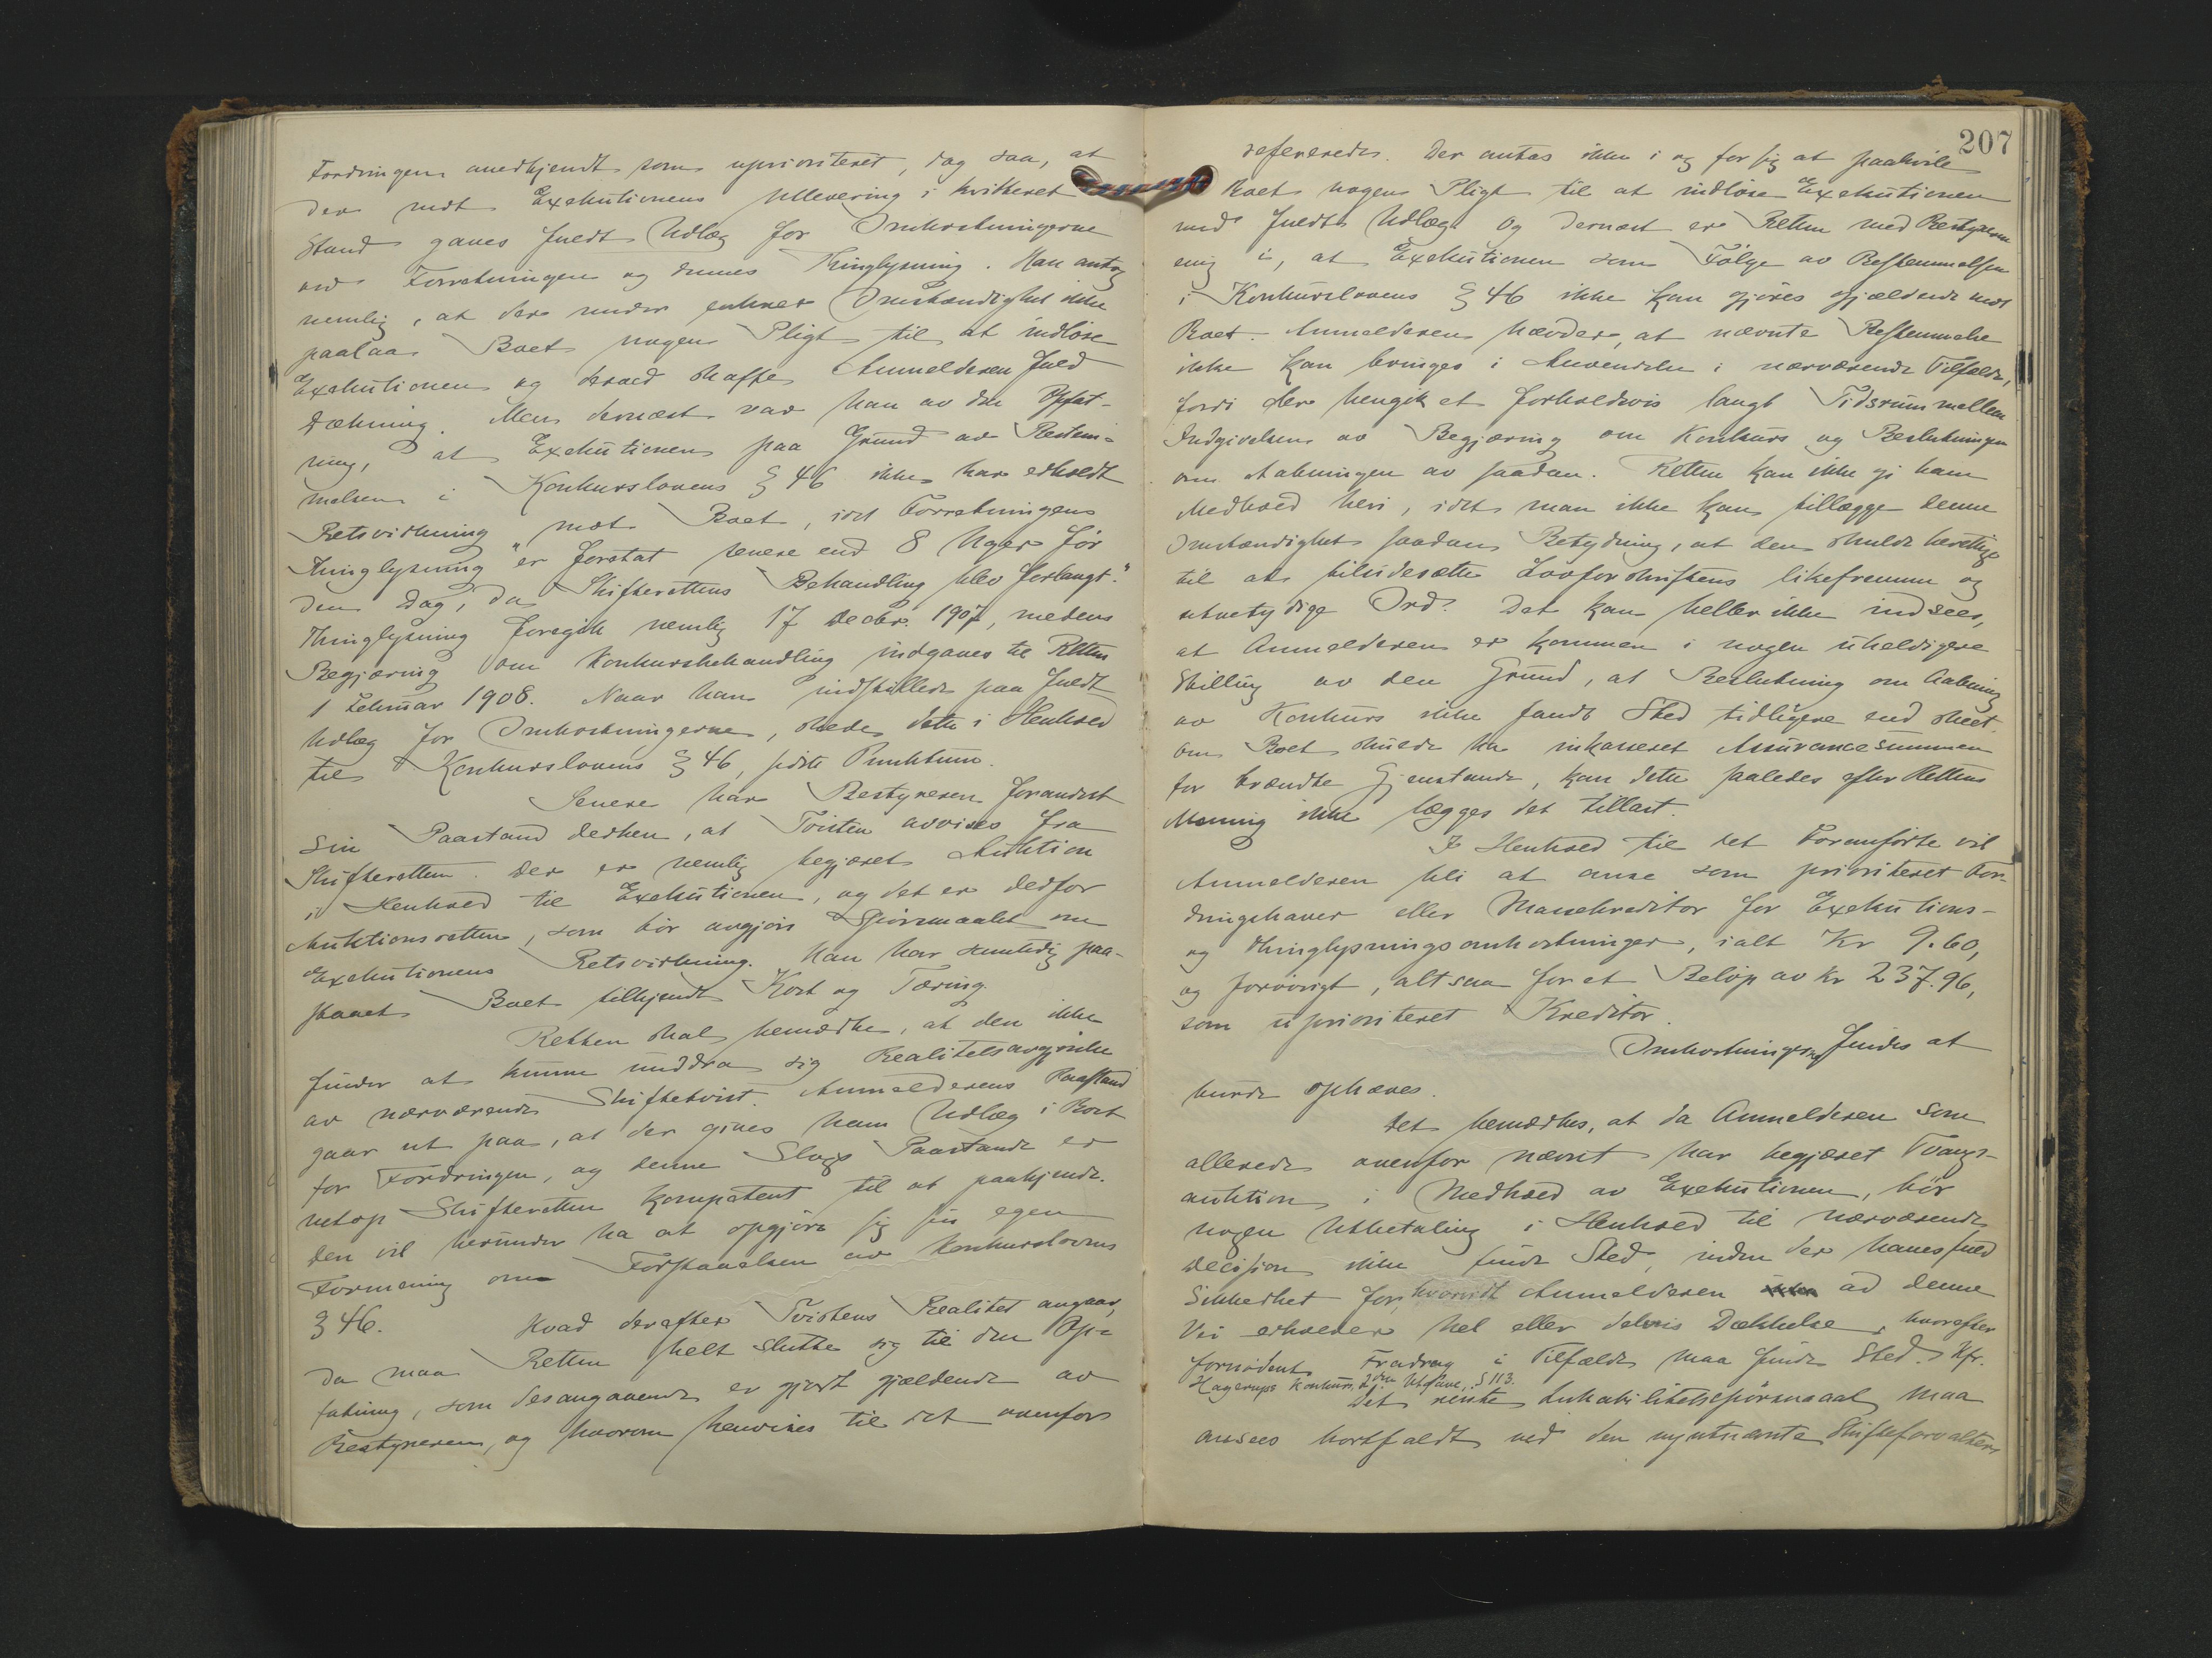 Fordringen anerkjendt som uprioritert, dog saa, at
der mot Exekutionens Utlevering i kvitteret
Stand gaves fuldt Utlæg for Omkostningerne
ved Forretningen og dennes Thinglysning. Han antog
nemlig, at der under enhver Omstændighet ikke
paalaa Boet nogen Pligt til at indløse
Exekutionen og derved skaffe Anmelderen fuld
Dækning. Men dernæst var han av den Opfat-
ning, at Exekutionen paa Grund av Bestem-
melsen i Konkurslovens § 46 ikke har erholdt
Retsvirkning mot Boet, idet Forretningens
Thinglysning "er foretat senere end 8 Uger før
den Dag, da Skifterettens Behandling blev forlangt."
Thinglysning foregik nemlig 17 Decbr. 1907, medens
Begjæring om Konkursbehandling indgaves til Retten
1 Februar 1908. Naar han indstillede paa fuldt
Utlæg for Omkostningerne, skede dette i Henhold
til Konkurslovens § 46, sidste Punktum.
Senere har Bestyreren forandret
sin Paastand derhen, at Tvisten avvises fra
Skifteretten. Der er nemlig begjæret Auktion
i Henhold til Exekutionen, og det er derfor
Auktionsretten, som bør avgjøre Spørsmaalet om
Exekutionens Retsvirkning. Han har samtidig paa-
staaet Boet tilkjendt Kost og Tæring.
Retten skal bemærke, at den ikke
finder at kunne unddra sig Realitetsavgjørelse
av nærværende Skiftetvist. Anmelderens Paastand
gaar ut paa, at der gives ham Utlæg i Boet
for Fordringen, og denne Slags Paastande er
netop Skifteretten kompetent til at paakjende.
Den vil herunder ha at opgjøre sig sin egen
Formening om Forstaaelsen av Konkurslovens
§ 46.
Hvad derefter Tvistens Realitet angaar,
da maa Retten helt slutte sig til den Op-
fatning, som desangaaende er gjort gjældende av
Bestyreren, og hvorom henvises til det ovenfor
207
refererede. Der antas ikke i og for sig at paahvile
Boet nogen Pligt til at indløse Exekutionen
med fuldt Utlæg. Og dernæst er Retten med Bestyreren
enig i, at Exekutionen som Følge av Bestemmelsen
i Konkurslovens § 46 ikke kan gjøres gjældende mot
Boet. Anmelderen hævder, at nævnte Bestemmelse
ikke kan bringes i Anvendelse i nærværende Tilfælde,
fordi der hengik et forholdsvis langt Tidsrum mellem
Indgivelsen av Begjæring om Konkurs og Beslutningen
om Aabningen av saadan. Retten kan ikke gi ham
Medhold heri, idet man ikke kan tillægge denne
Omstændighet saadan Betydning, at den skulde berettige
til at tilsidesætte Lovforskriftens likefremme og
utvetydige Ord. Det kan heller ikke indsees,
at Anmelderen er kommen i nogen uheldigere
Stilling av den Grund, at Beslutning om Aabning
av Konkurs ikke fandt Sted tidligere end skeet.
Om Boet skulde ha inkasseret Assurancesummen
for brændte Gjenstande, kan dette saaledes efter Rettens
Mening ikke lægges det tillast.
I Henhold til det Foranførte vil
Anmelderen bli at anse som prioriteret For-
dringshaver eller Massekreditor for Exekutions-
og Thinglysningsomkostninger, ialt Kr 9.60,
og forøvrigt, altsaa for et Beløp av kr 237.96,
som uprioriteret Kreditor.
Omkostningerne findes at
burde ophæves.
Det bemerkes, at da Anmelderen som
allerede ovenfor nævnt har begjæret Tvangs-
auktion i Medhold av Exekutionen, bør
nogen Utbetaling i Henhold til nærværende
Decision ikke finde Sted, inden der haves fuld
Sikkerhet for, hvorvidt Anmelderen ad denne
Vei erholder hel eller delvis Dækkelse, hvorefter
fornødent Fradrag i Tilfælde maa finde Sted. Kfr.
Hagerups Konkurs, 2den Utgave, § 113.
Det reiste Inhabilitetsspørsmaal maa
ansees bortfaldt ved den nyutnævnte Skifteforvalters